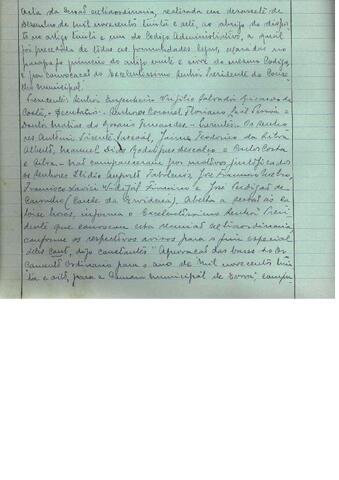 Acta da sessão extraordinária, realizada em desassete de
Dezembro de mil novecentos trinta e sete, ao abrigo do dispos-
to no artigo trinta e um do Código Administrativo, a qual
foi precedida de todas as formalidades legais, exaradas no
paragrafo primeiro do artigo vinte e nove do mesmo Codigo,
e por convocação do Excelentissimo Senhor Presidente do Conse-
lho Municipal.
Presidente: Senhor Engenheiro Virgilio Salvador Ricardo da
Costa, - Secretarios: - Senhores Coronel Floriano José
e
Bento Matias do Rosario Fernandes - Os Senho-
res António Vicente Pascoal, Jaime Teodorico da Silva
Alberto, Manuel Dias Rodrigues e Carlos Costa
e Silva - Não compareceram por motivos justificados
os Senhores Elidio Augusto José Francisco
Francisco Xavier e José Perdigão de
Carvalho (Conde da Ervideira). Aberta a sessão ás
horas, informa o Excelentissimo Senhor Presi-
dente que convocou esta reunião extraordinaria
conforme os respectivos avisos para o fim especial
deles const, digo constantes "Aprovação das bases do Or-
çamento Ordinario para o ano de mil novecentos trin-
ta e oito, para a Camara Municipal de